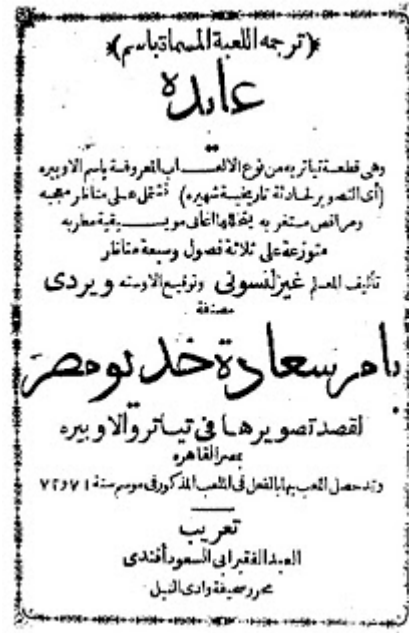 ﴿ترجمه اللعبة المسماة باسم﴾
عايده
وهى قطعة تياتريه من نوع الالعـاب المعروفة باسم الاوبيره
(أى التصوير لحادثة تاريخية شهيره) تشتمل على مناظر معجبه
ومراقص مستغربه يتخللها اغانى موسيقية مطربه
متوزعة على ثلاثة فصول وسبعة مناظر
تأليف المعلم غيزلنسونى وتوقيع الاوسته ويردى
مصنفة
بامر سعادة خديو مصر
لقصد تصويرها فى تياترو الاوبيره
بمصر القاهره
وقد حصل اللعب بها بالفعل فى الملعب المذكور فى موسم سنة ٧١ و ٧٢
تعريب
العبد الفقير ابى السعود أفندى
محرر صحيفة وادى النيل